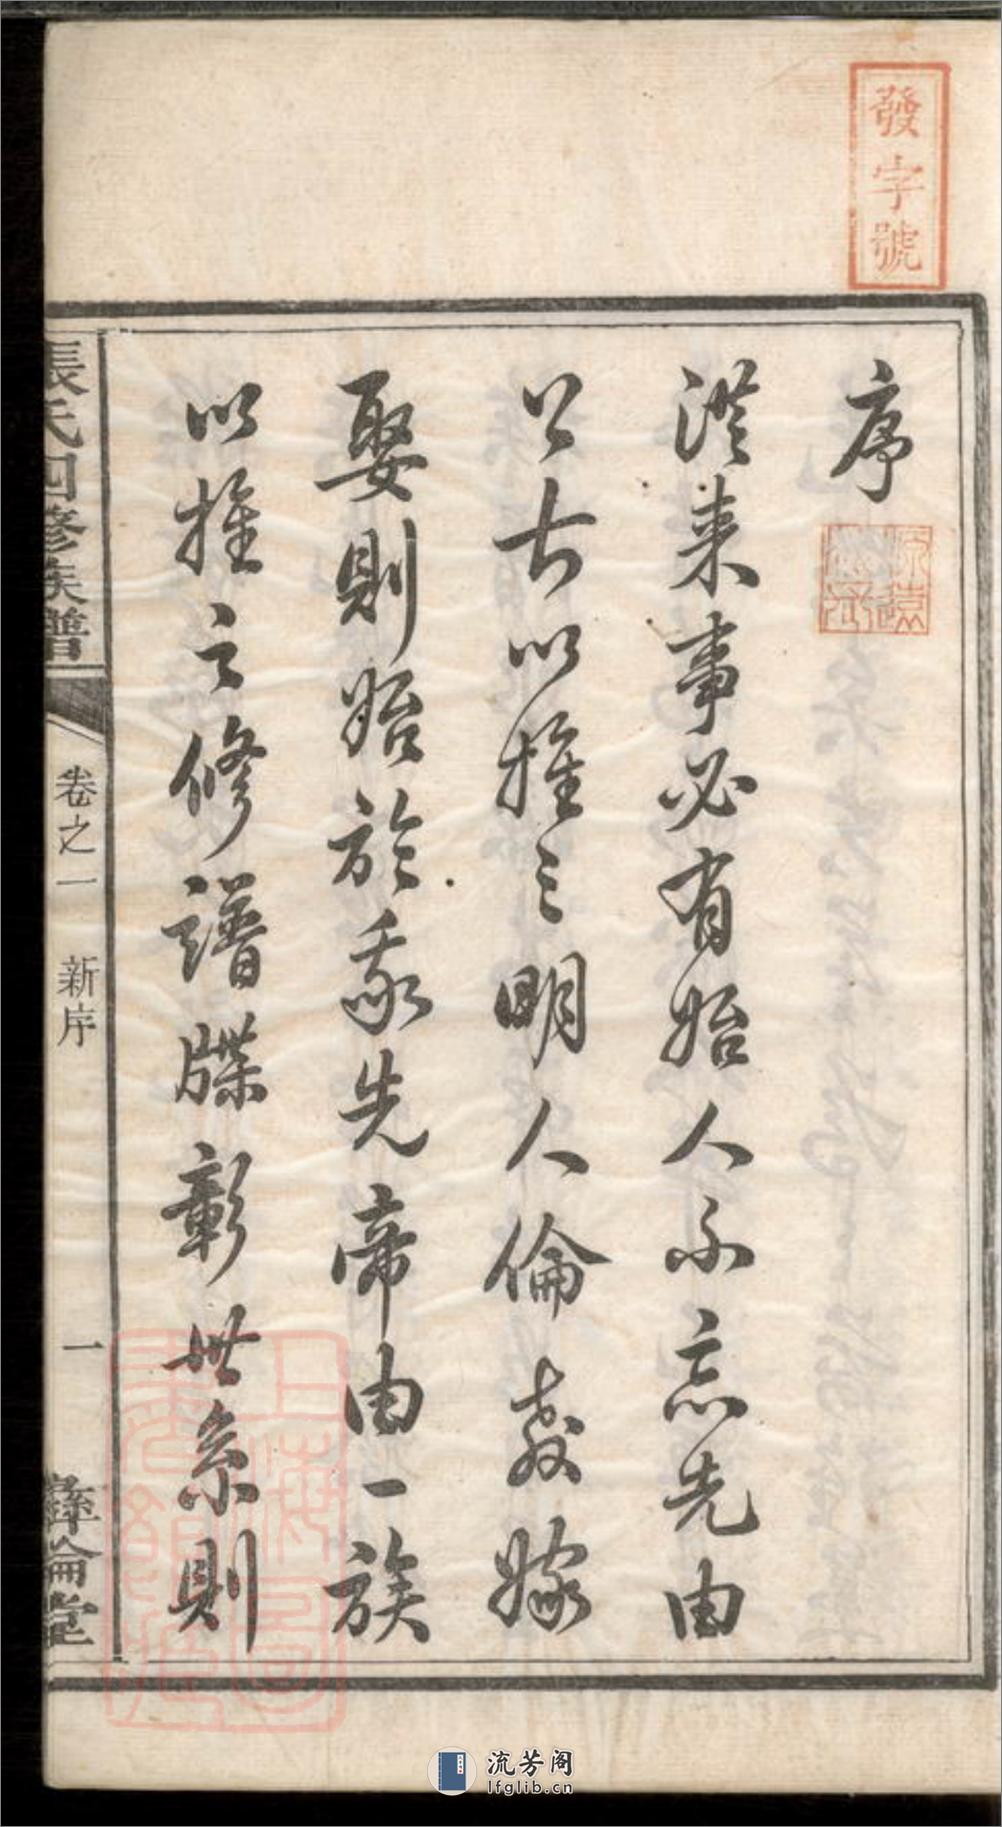 發字號
序
從來事必有始人不忘先由
上古以推之明人倫教嫁
娶則始於我先帝由一族
以推之修譜牒彰世系則
張氏四修族譜
卷之一 新序
一
彝倫堂
上海圖書館藏
流芳阁
lfglib.cn